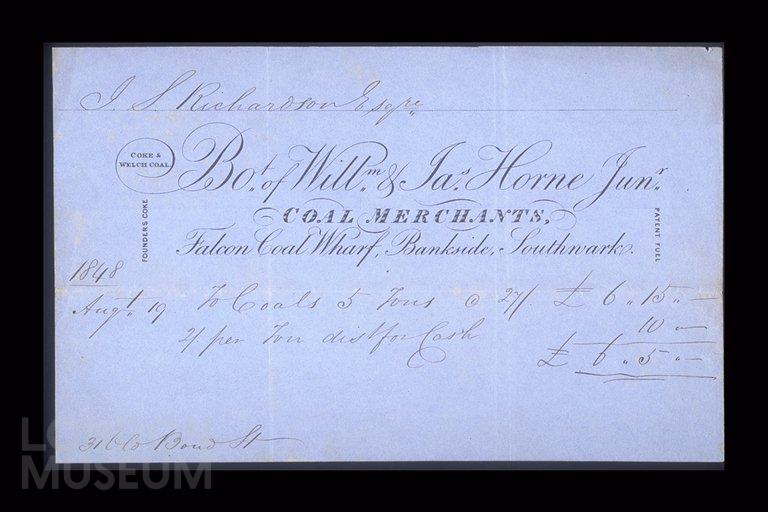 J. S. Richardson Esqre
COKE &
WELCH COAL
Bot. of Willm. & Jas. Horne Junr.
COAL MERCHANTS,
FOUNDERS COKE
PATENT FUEL
Falcon Coal Wharf, Bankside, Southwark.
1848
Augt 19 To Coals 5 Tons @ 27/. £ 6 " 15 " —
10 " —
2/ per Ton dist for Cash
£ 6 " 5 " —
Bond St
MUSEUM